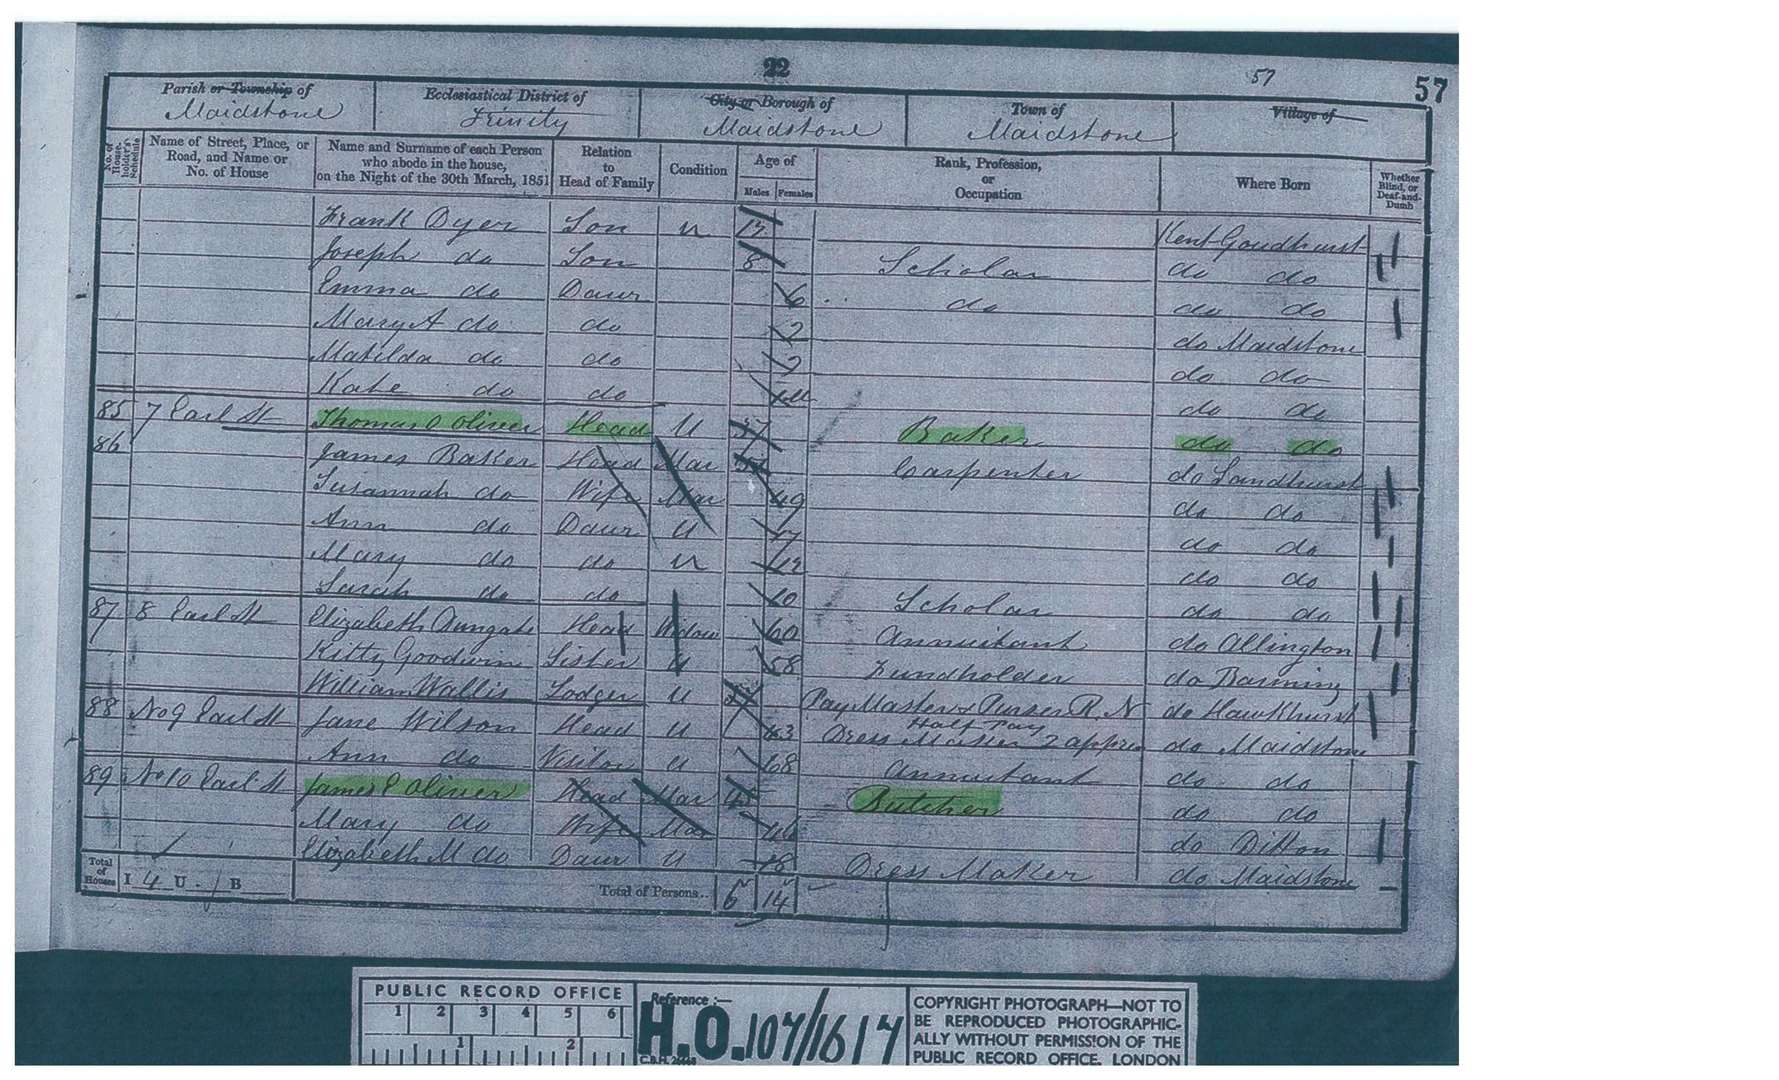 22
57
57
Parish or Township of
Maidstone
Ecclesiastical District of
Trinity
City or Borough of
Maidstone
Town of
Maidstone
Village of
No. of House-holder's Schedule
Name of Street, Place, or Road, and Name or No. of House
Name and Surname of each Person who abode in the house, on the Night of the 30th March, 1851
Relation to Head of Family
Condition
Age of
Males Females
Rank, Profession, or Occupation
Where Born
Whether Blind, or Deaf-and-Dumb
Frank Dyer Son U Kent Goudhurst
Joseph do Son 8 Scholar do do
Emma do Daur 6 do do do
Mary A do do 2 do Maidstone
Matilda do do 2 do do
Kate do do do do
85 7 Earl St Thomas O Oliver Head U 37 Baker do do
86 James Baker Head Mar Carpenter do Sandhurst
Susannah do Wife Mar 49 do do
Ann do Daur U 17 do do
Mary do do U 12 do do
Sarah do do 10 Scholar do do
87 8 Earl St Elizabeth Dungate Head Widow 60 Annuitant do Allington
Kitty Goodwin Sister U 58 Fundholder do Barming
William Wallis Lodger U Pay Master & Purser R.N do Hawkhurst
Half Pay
88 No 9 Earl St Jane Wilson Head U 43 Dress Maker 2 appren do Maidstone
Ann do Visitor U 68 Annuitant do do
89 No 10 Earl St James P Oliver Head Mar 45 Butcher do do
Mary do Wife Mar 46 do Ditton
Elizabeth M do Daur U 18 Dress Maker do Maidstone
Total of Houses I 4 U B Total of Persons 6 14
PUBLIC RECORD OFFICE
1 2 3 4 5 6
1 2
Reference :—
H.O. 107/1617
COPYRIGHT PHOTOGRAPH—NOT TO
BE REPRODUCED PHOTOGRAPHIC-
ALLY WITHOUT PERMISSION OF THE
PUBLIC RECORD OFFICE, LONDON